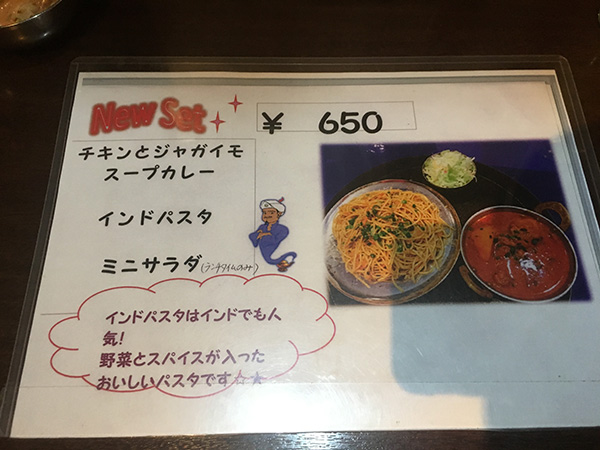 New Set
￥ 650
チキンとジャガイモ
スープカレー
インドパスタ
ミニサラダ(ランチタイムのみ)
インドパスタはインドでも人
気!
野菜とスパイスが入った
おいしいパスタです☆★